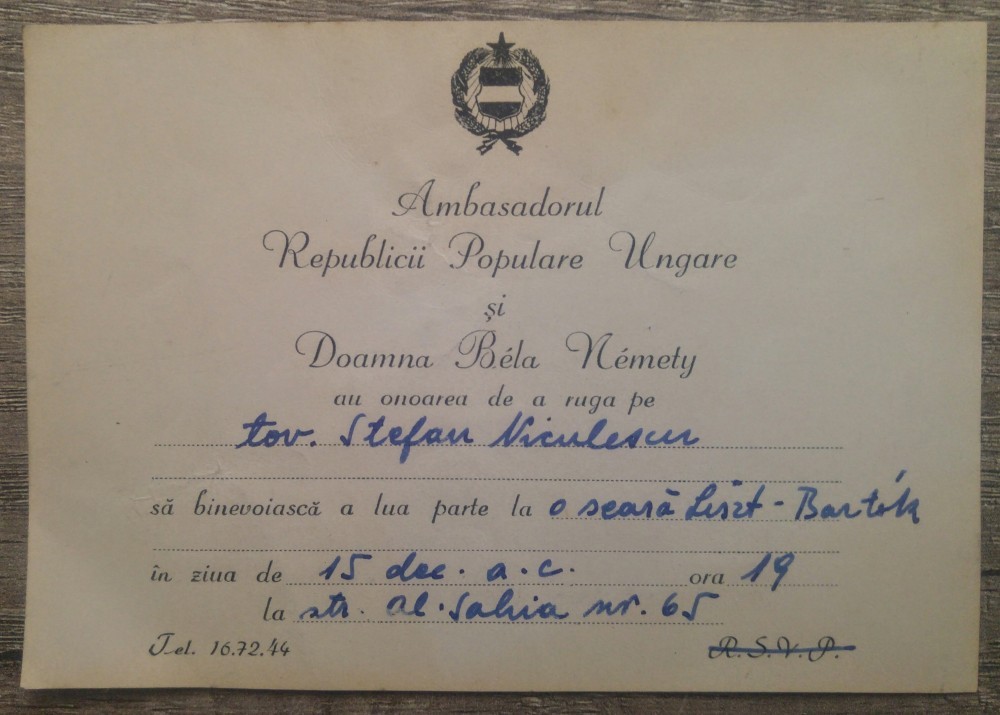 Ambasadorul
Republicii Populare Ungare
și
Doamna Béla Némety
au onoarea de a ruga pe
tov. Stefan Niculescu
să binevoiască a lua parte la o seară Liszt - Bartók
în ziua de 15 dec. a.c. ora 19
la str. Al. Sahia nr. 65
Tel. 16.72.44 R.S.V.P.